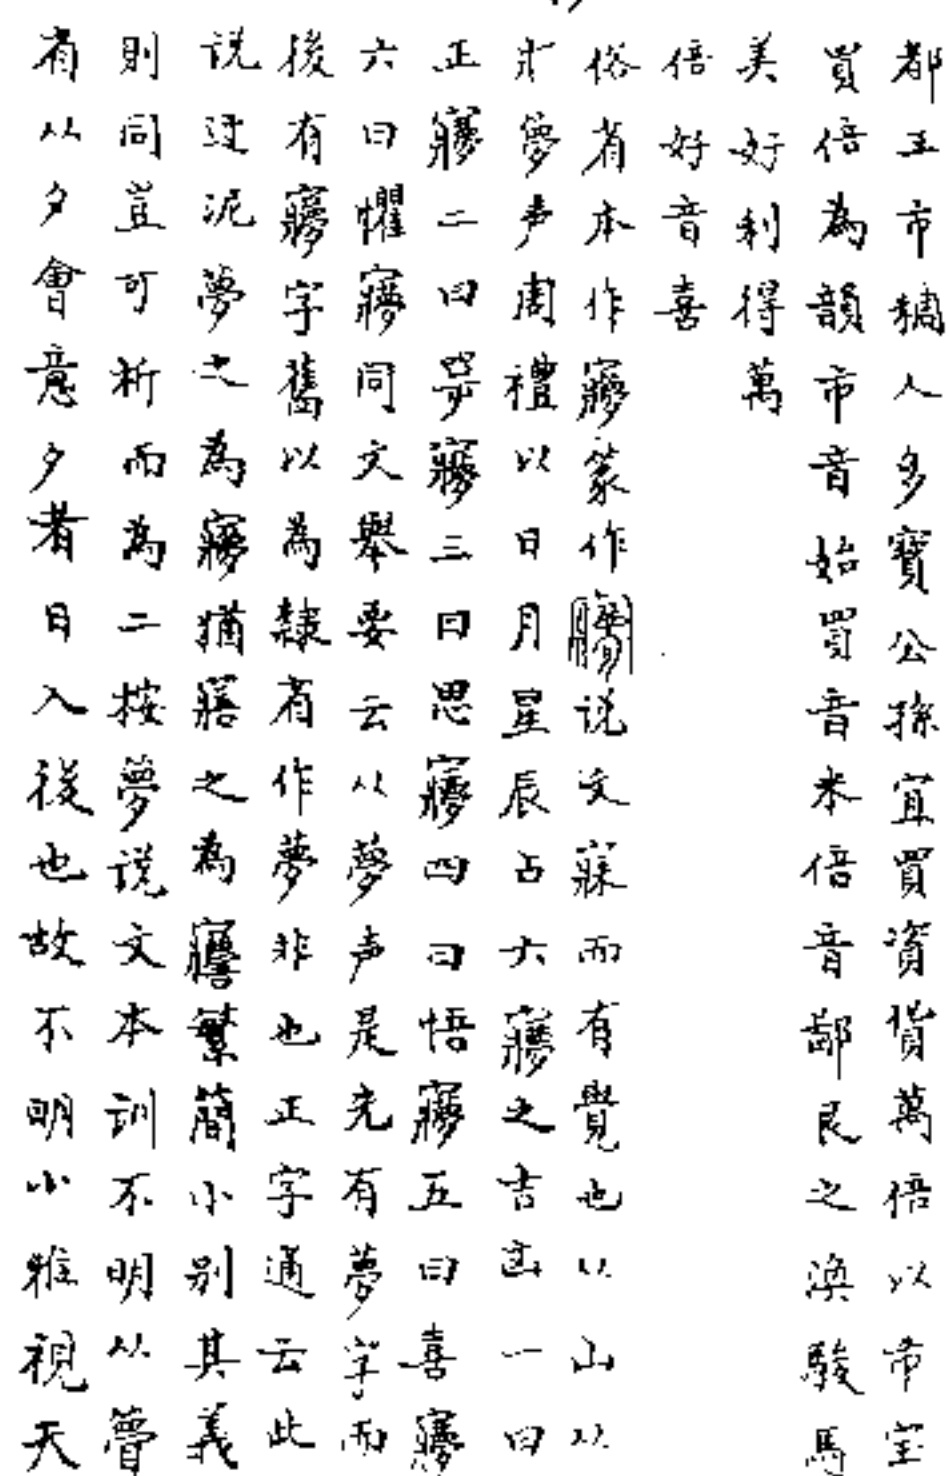 都王市人多寶公孫宜買資貨萬倍以市室
買倍為韻市音始買音米倍音鄙艮之渙駿馬
美好利得萬
倍好音喜
俗者本作㝱篆作说文寐而有覺也从山从
爿夢声周禮以日月星辰占六㝱之吉凶一曰
正㝱二曰咢㝱三曰思㝱四曰悟㝱五曰喜㝱
六曰懼㝱同文舉要云从夢声是先有夢字而
後有㝱字舊以為隸省作夢非也正字通云此
説迂泥夢之為㝱猶之為繁簡小别其義
則同豈可析而為二按夢説文本訓不明从瞢
省从夕會意夕者日入後也故不明小雅視天